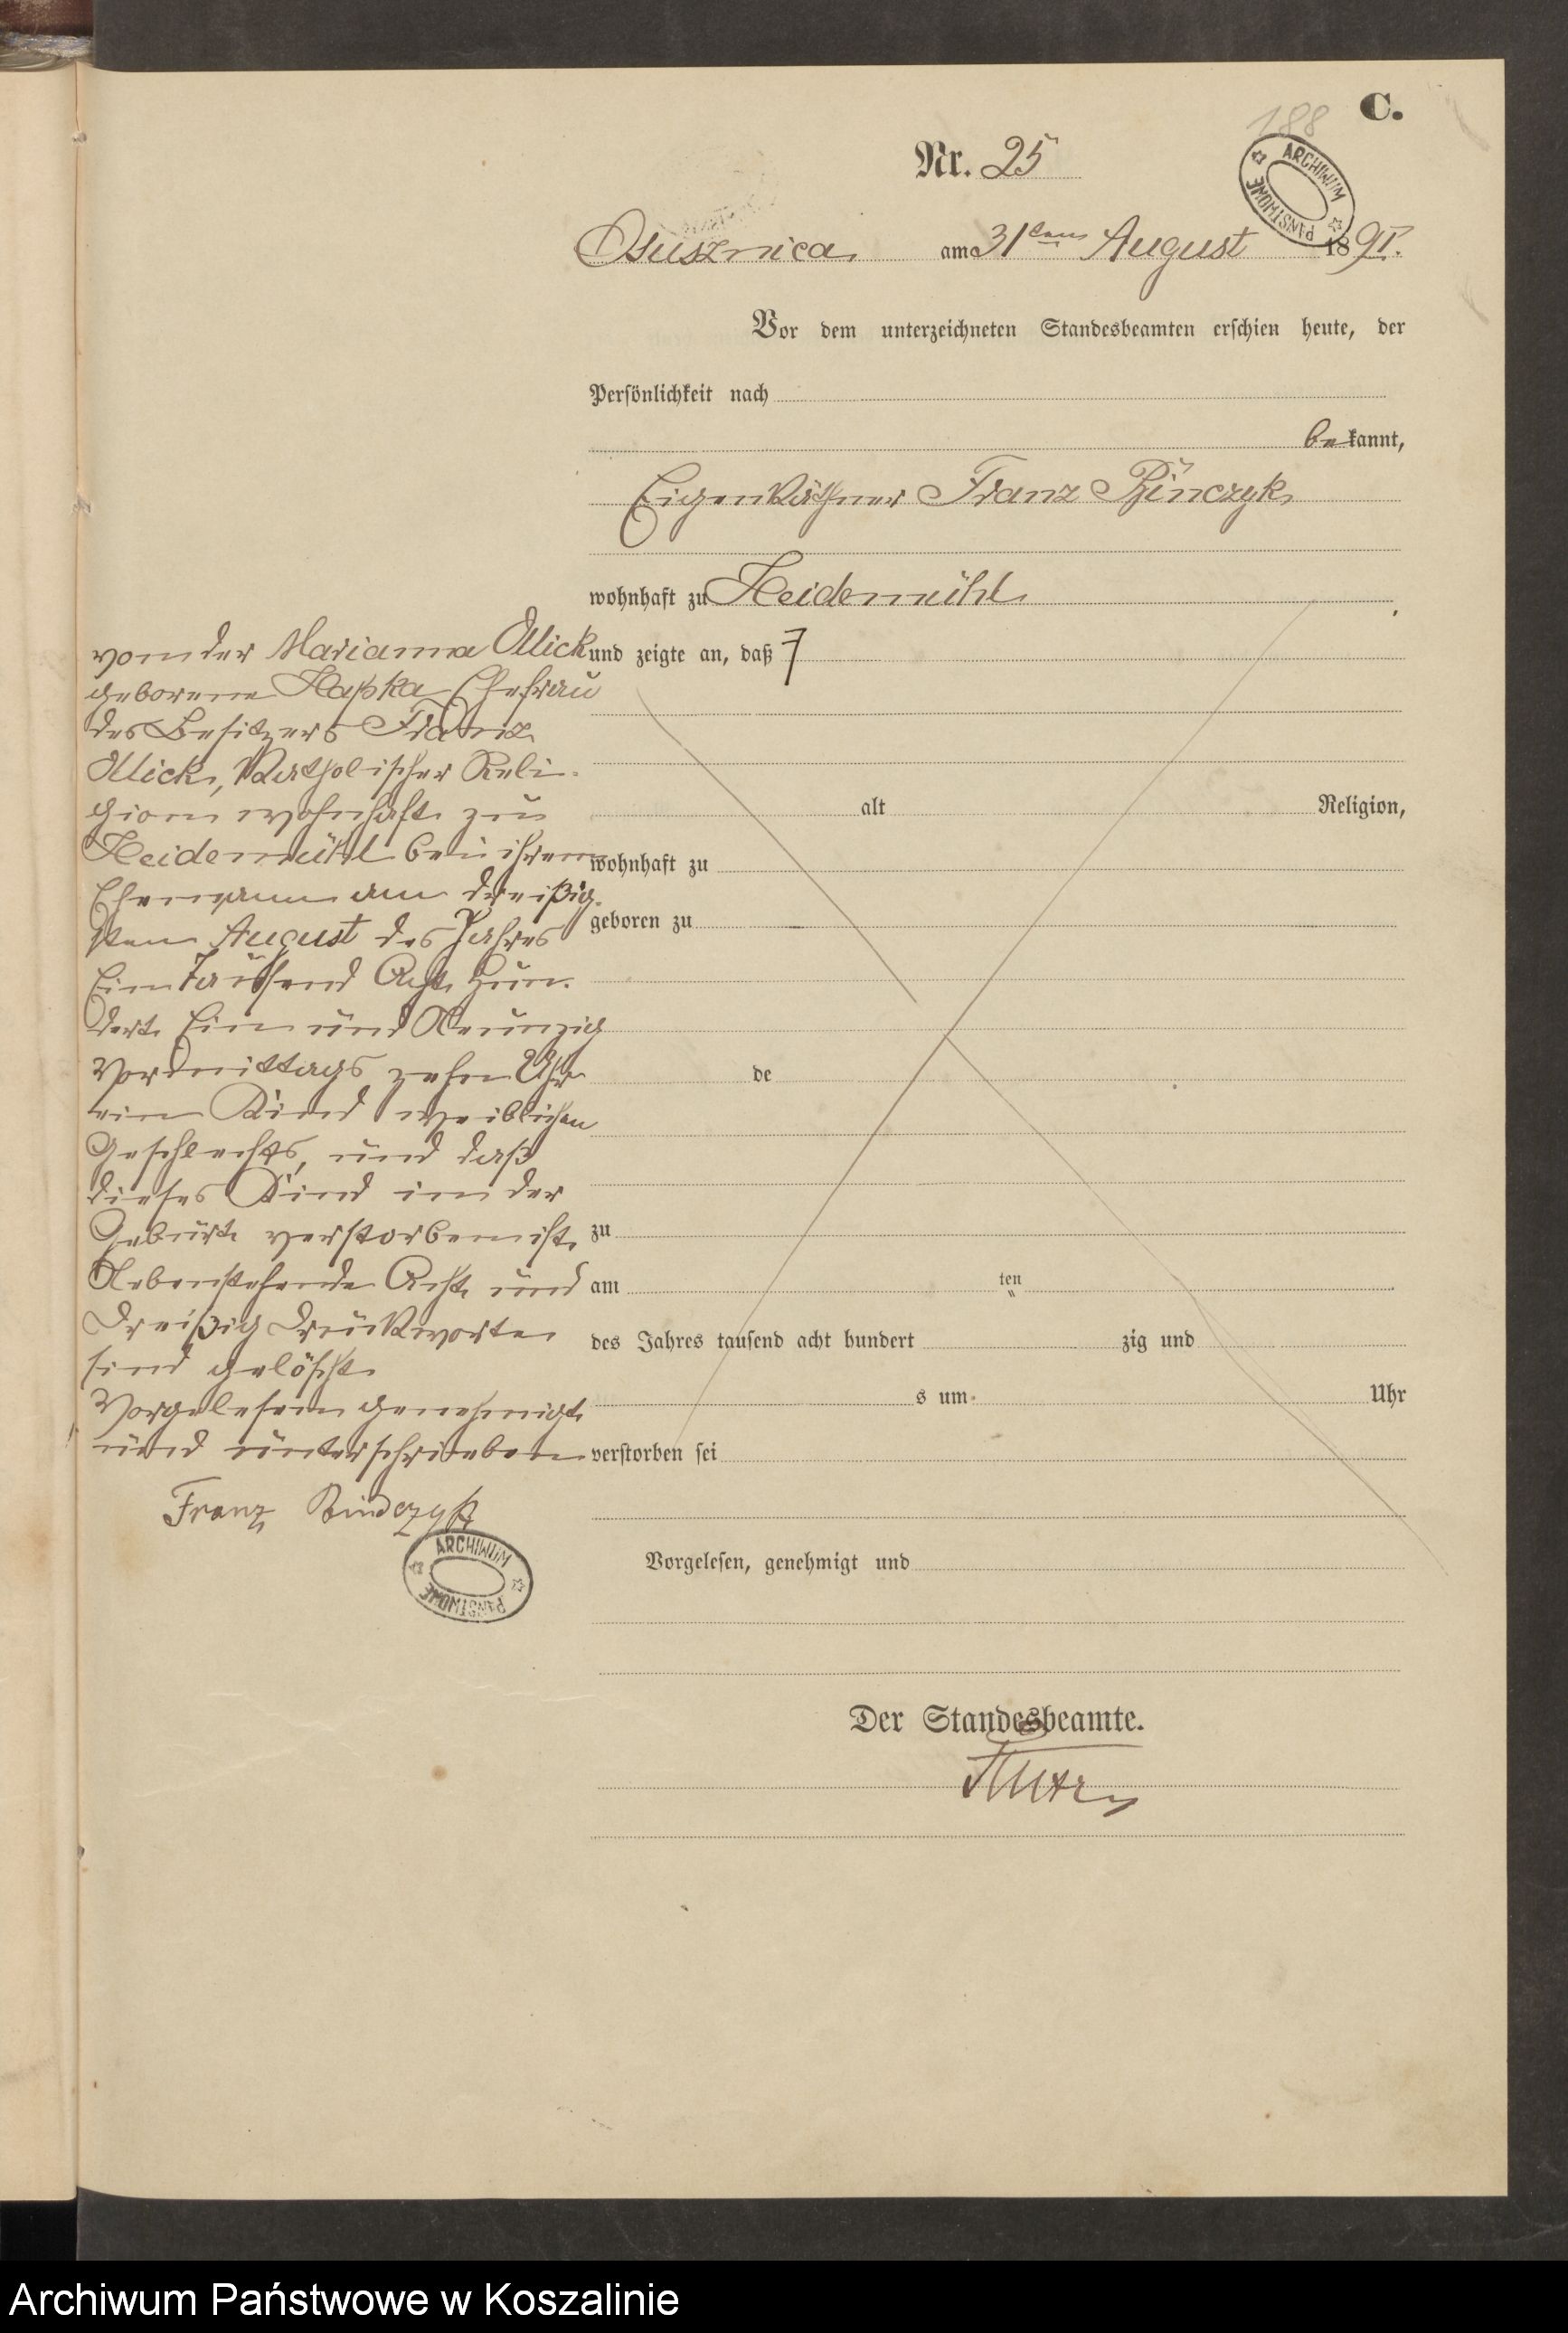 C.
188
Nr. 25
ARCHIWUM PAŃSTWOWE
Ossusznica am 31ten August 1891.
Vor dem unterzeichneten Standesbeamten erschien heute, der
Persönlichkeit nach
bekannt,
Eigenkäthner Franz Rÿnczyk
wohnhaft zu Heidemühl
und zeigte an, daß
von der Marianna Mick
geborene Hapka Ehefrau
des Besitzers Franz
Mick, Katholischer Reli-
gion wohnhaft zu
Heidemühl bei ihrem
Ehemann am dreißig-
sten August des Jahres
Ein Tausend Acht Hun-
dert Ein und Neunzig
Vormittags zehn Uhr
ein Kind weiblichen
Geschlechts, und daß
dieses Kind in der
Geburt verstorben ist.
Nebenstehende Acht und
Dreißig Druckworte
sind gelöscht
Vorgelesen genehmigt
und unterschrieben
Franz
ARCHIWUM PAŃSTWOWE
alt Religion,
wohnhaft zu
geboren zu
de
zu
am ten
des Jahres tausend acht hundert zig und
s um Uhr
verstorben sei
Vorgelesen, genehmigt und
Der Standesbeamte.
Archiwum Państwowe w Koszalinie